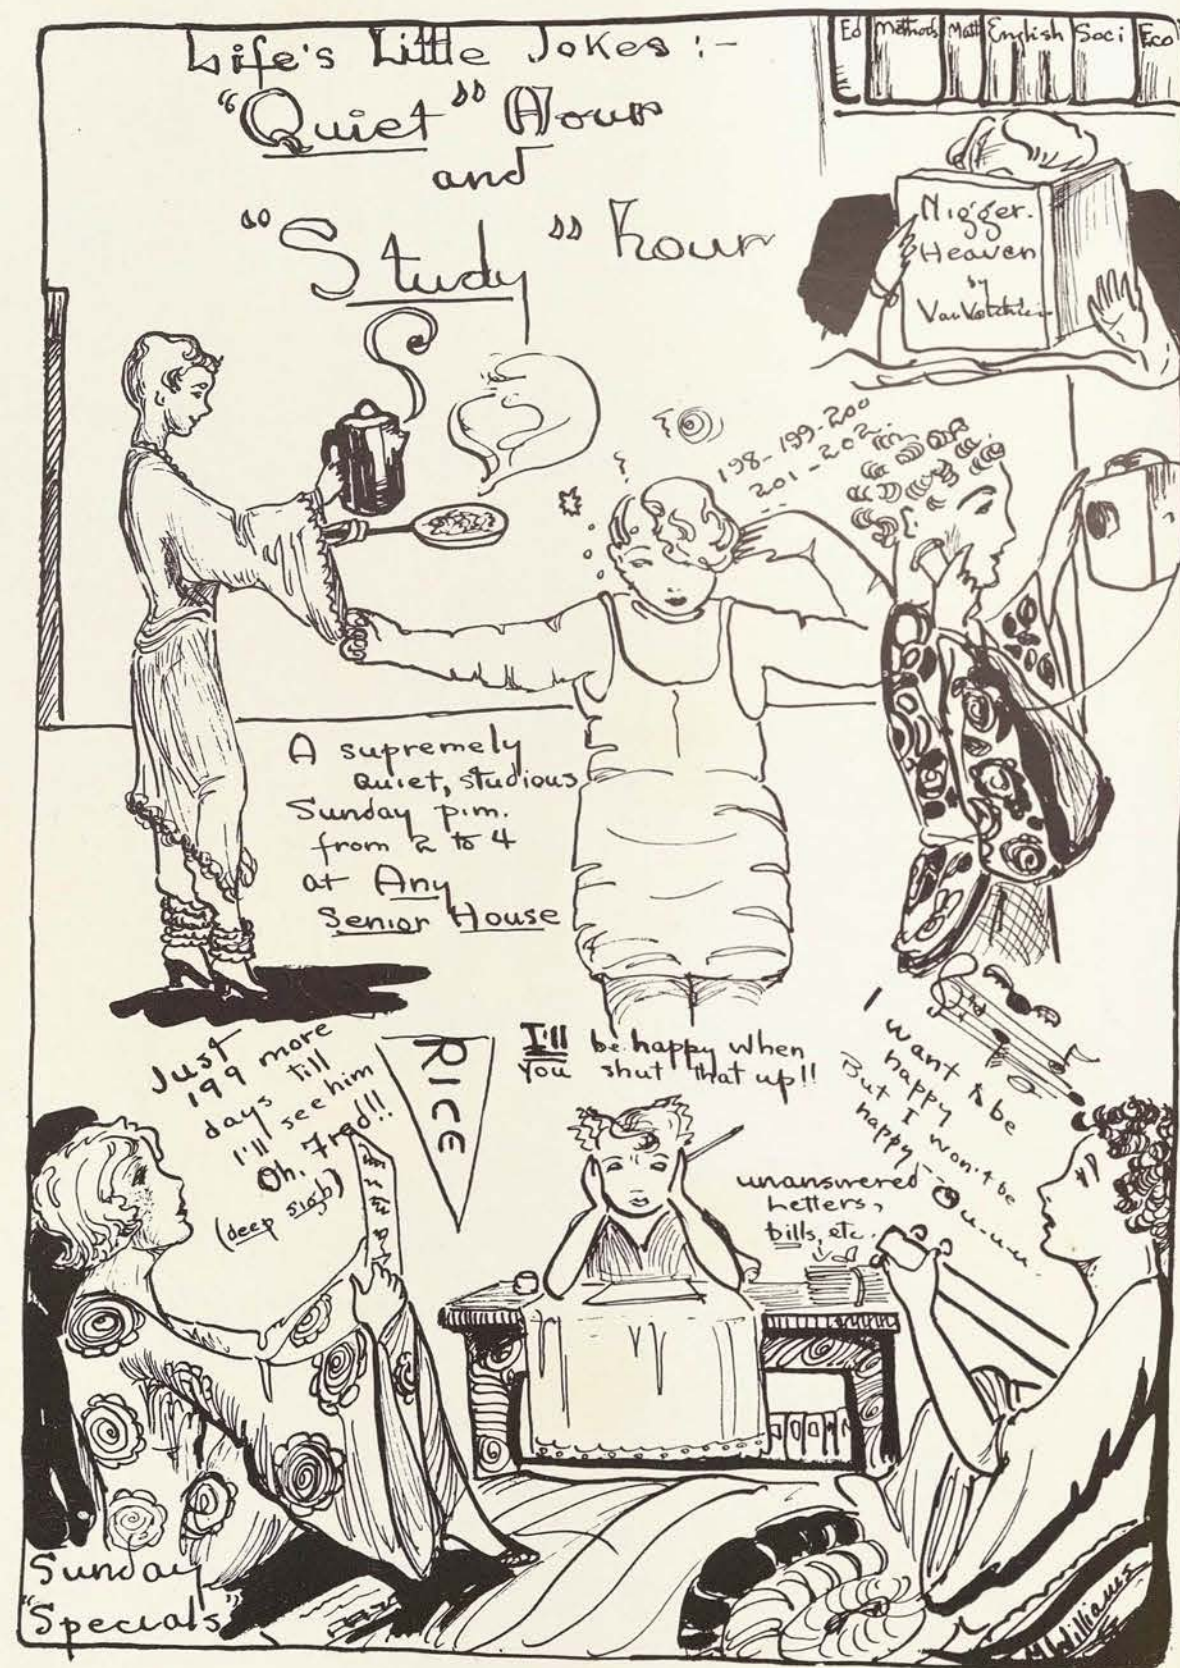 Life's Little Jokes :-
"Quiet" Hour
and
"Study" hour
Ed Methods Math English Soci Eco
Nigger.
Heaven
by
198-199-200
201-202.
A supremely
quiet, studious
Sunday p.m.
from 2 to 4
at Any
Senior House
Just
199 more
days till
I'll see him
Oh, Fred!!
(deep sigh)
RICE
I'll be happy when
you shut that up!!
I want to be
happy
But I won't be
happy--
unanswered
Letters,
bills, etc.
Sunday
"Specials"
M Williams